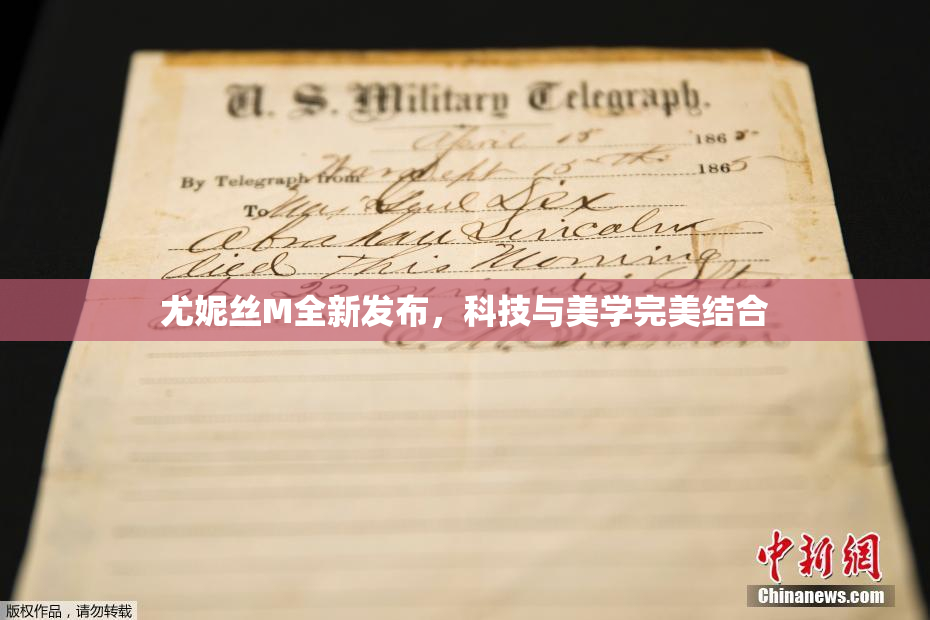 U. S. Military Telegraph.
April 15 1865
By Telegraph from War Dept 15th 1865
To Maj Genl Dix
Abraham Lincoln
died This Morning
at 22 minutes after
尤妮丝M全新发布，科技与美学完美结合
E. M. Stanton
中新网
Chinanews.com
版权作品，请勿转载